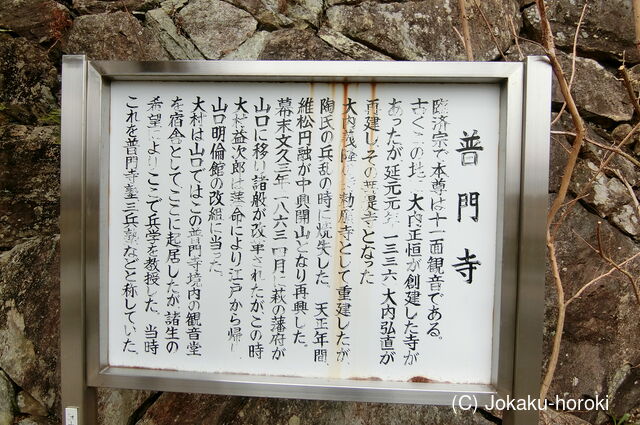 普門寺
臨済宗で本尊は十一面観音である。
古くこの地に大内正恒が創建した寺が
あったが延元元年一三三六大内弘直が
再建しその菩提寺となった
大内義隆の時勅願寺として重建したが
陶氏の兵乱の時に焼失した 天正年間
維松円融が中興開山となり再興した。
幕末文久三年一八六三四月に萩の藩府が
山口に移り諸般が改革されたがこの時
大村益次郎は藩命により江戸から帰り
山口明倫館の改組に当った。
大村は山口ではこの普門寺境内の観音堂
を宿舎としてここに起居したが、諸生の
希望によりここで兵学を教授した。当時
これを普門寺塾三兵塾などと称していた。
(C) Jokaku-horoki